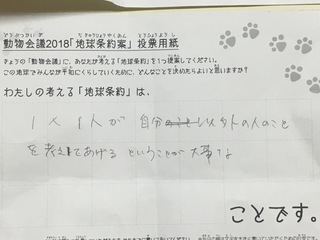 動物会議2018「地球条約案」投票用紙
きょうの「動物会議」に、あなたが考える「地球条約」を1つ提案してください。
この地球でみんなが平和にくらしていくために、どんなことを決めたらよいと思いますか?
わたしの考える「地球条約」は、
1人1人が 自分以外の人のこと
を考えてあげる ということが 大事な
ことです。